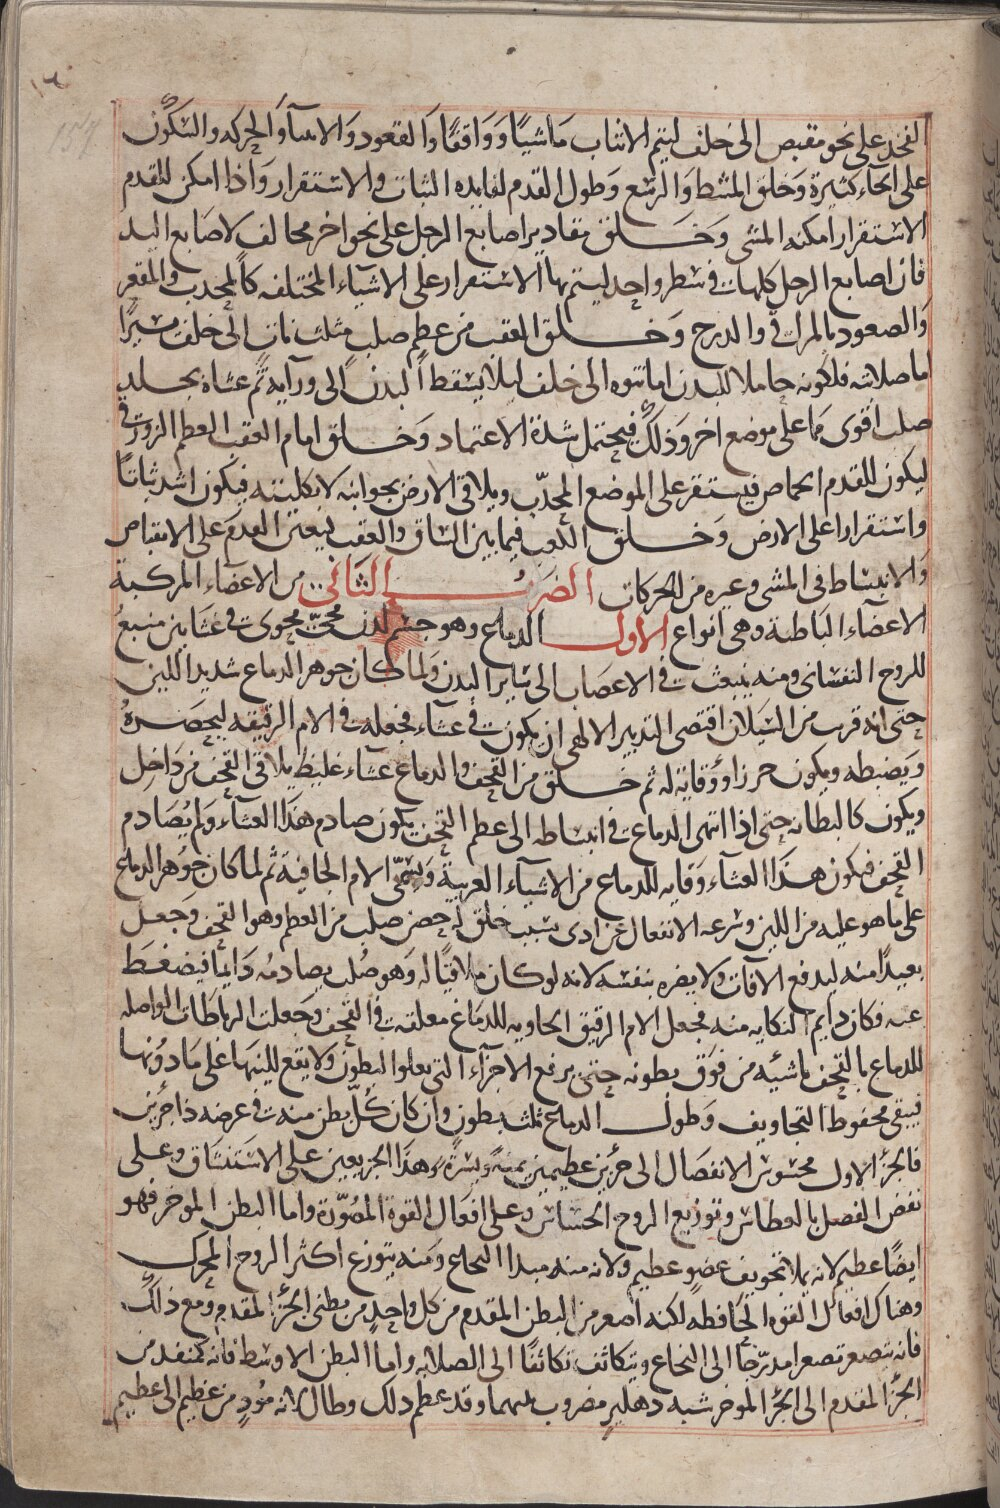 الفخذ على نحو مقبض الى خلف ليتم الانتصاب ماشيًا وواقفًا والقعود والاسآ والحركه والتكون
على انحآء كثيرة وخلق المشط والرسغ وطول القدم لفايده الثبات والاستقرار واذا امكن للقدم
الاستقرار امكنه المشى وخلق مقادير اصابع الرجل على نحو اخر مخالف لاصابع اليد
فان اصابع الرجل كلهات فى شطر واحد ليتم بها الاستقرار على الاشياء المختلفه كالمحدب والمقعر
والصعود بالمراقى والدرج وخلق العقب من عظم صلب مثلث نات الى خلف يسيرًا
اما صلابته فلكونه حاملا للبدن اما نتوه الى خلف ليلا يسقط البدن الى ورآيه ثم غشاه بجلد
صلب اقوى مما على موضع اخر وذلك فيحتمل شدة الاعتماد وخلق امام العقب العظم الزورقى
ليكون للقدم اخماص فيستقر على الموضع المحدّب ويلاقى الارض بجوانبه لا بكليته فيكون اشد ثباتا
واستقرارا على الارض وخلق الكعب فيما بين الساق والعقب ليعين القدم على الانقباض
والانبساط فى المشى وغيره من الحركات الضرب الثانى من الاعضاء المركبة
الاعضآء الباطنة وهى انواع الاول الدماغ وهو جسم لدن مخىّ محوى فى غشايين منبعُ
للروح النفسانى ومنه ينبعث فى الاعصاب الى ساير البدن ولما كان جوهر الدماغ شديد اللين
حتى انه قرب من السيلان اقتضى التدبير الالهى ان يكون فى غشاء فجعله فى الام الرقيقه ليحصره
ويضبطه ويكون حرزا ووقاية له ثم خلق من القحف والدماغ غشاء غليظ يلاقى القحف من داخل
ويكون كالبطانه حتى اذا انتهى الدماغ فى انبساطه الى عظم القحف يكون صادم هذا الغشاء ولم يصادم
القحف فيكون هذا الغشآء وقايه للدماغ من الاشياء الغريبة ويسمى الام الجافية ثم لما كان جوهر الدماغ
على ما هو عليه من اللين وسرعه الانفعال عن ادنى سبب خلق له حصن صلب من العظم وهو القحف وجعل
بعيدا منه ليدفع الآفات ولا يضره بنفسه لانه لو كان ملاقيًا له وهو صُلب يصادمه دايمًا فيضغط
عنه فكان دايم النكايه منه فجعل الام الرقيق الحاويه للدماغ معلقة فى القحف وجعلت الرباطات الواصله
للدماغ بالقحف ناشئه من فوق بطونه حتى يرفع الاجزآء التى يعلوا البطون ولا يقع للينها على ما دونها
فيبقى محفوظ التجاويف وطول الدماغ ثلث بطون وان كان كل بطن منه فى عرضه ذا جزءين
فالجزء الاول محسوس الانفصال الى جزءين عظيمين يمنةً ويسرةً وهذا الجزء يعين على الاستنشاق وعلى
نفض الفضل بالعطاس وتوزيع الروح الحساس وعلى افعال القوة المصورة واما البطن الموخر فهو
ايضًا عظيم لانه يملا تجويف عضو عظيم ولانه منه مبدا النخاع ومنه يتوزع اكثر الروح المحرك
وهناك افعال القوه الحافظه لكنه اصغر من البطن المقدم من كل واحد من بطنى الجزء المقدم ومع ذلك
فانه يتصغر تصغرا مدرجًا الى النخاع ويتكاثف تكاثفًا الى الصلابه واما البطن الاوسط فانه كمنفذ من
الجزء المقدم الى الجزء الموخر شبه دهليز مضروب بينهما وقد عظم ذلك وطال لانه مؤد من عظيم الى عظيم